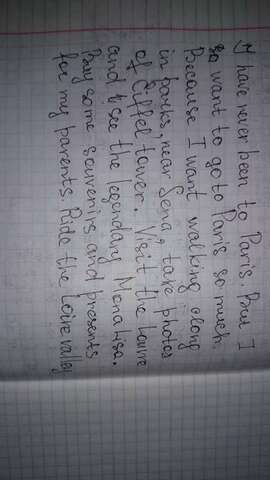 I have never been to Paris. But I
so want to go to Paris so much.
Because I want walking along
in parks, near Sena, take photos
of Eiffel tower. Visit the Louvre
and see the legendary Mona Lisa.
Buy some souvenirs and presents
for my parents. Ride the Loire valley